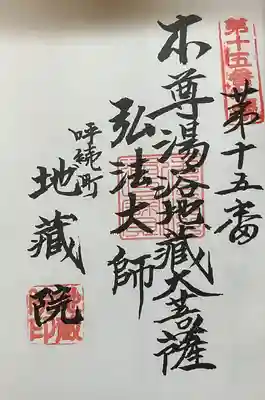 第十五番
第十五番
本尊湯浴地蔵大菩薩
弘法大師
呼続町
地蔵院